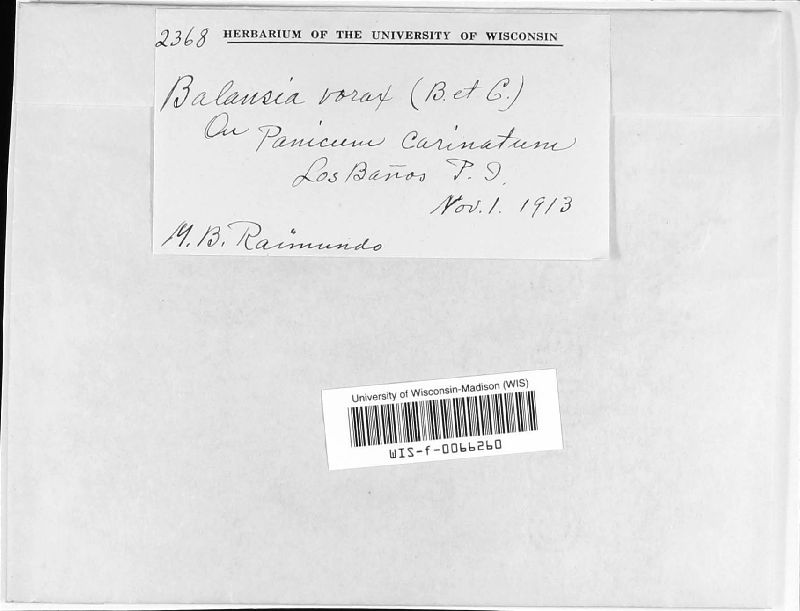 2368 HERBARIUM OF THE UNIVERSITY OF WISCONSIN
Balansia vorax (B. et C.)
On Panicum carinatum
Los Baños P. I.
Nov. 1. 1913
M. B. Raimundo
University of Wisconsin-Madison (WIS)
WIS-f-0066260